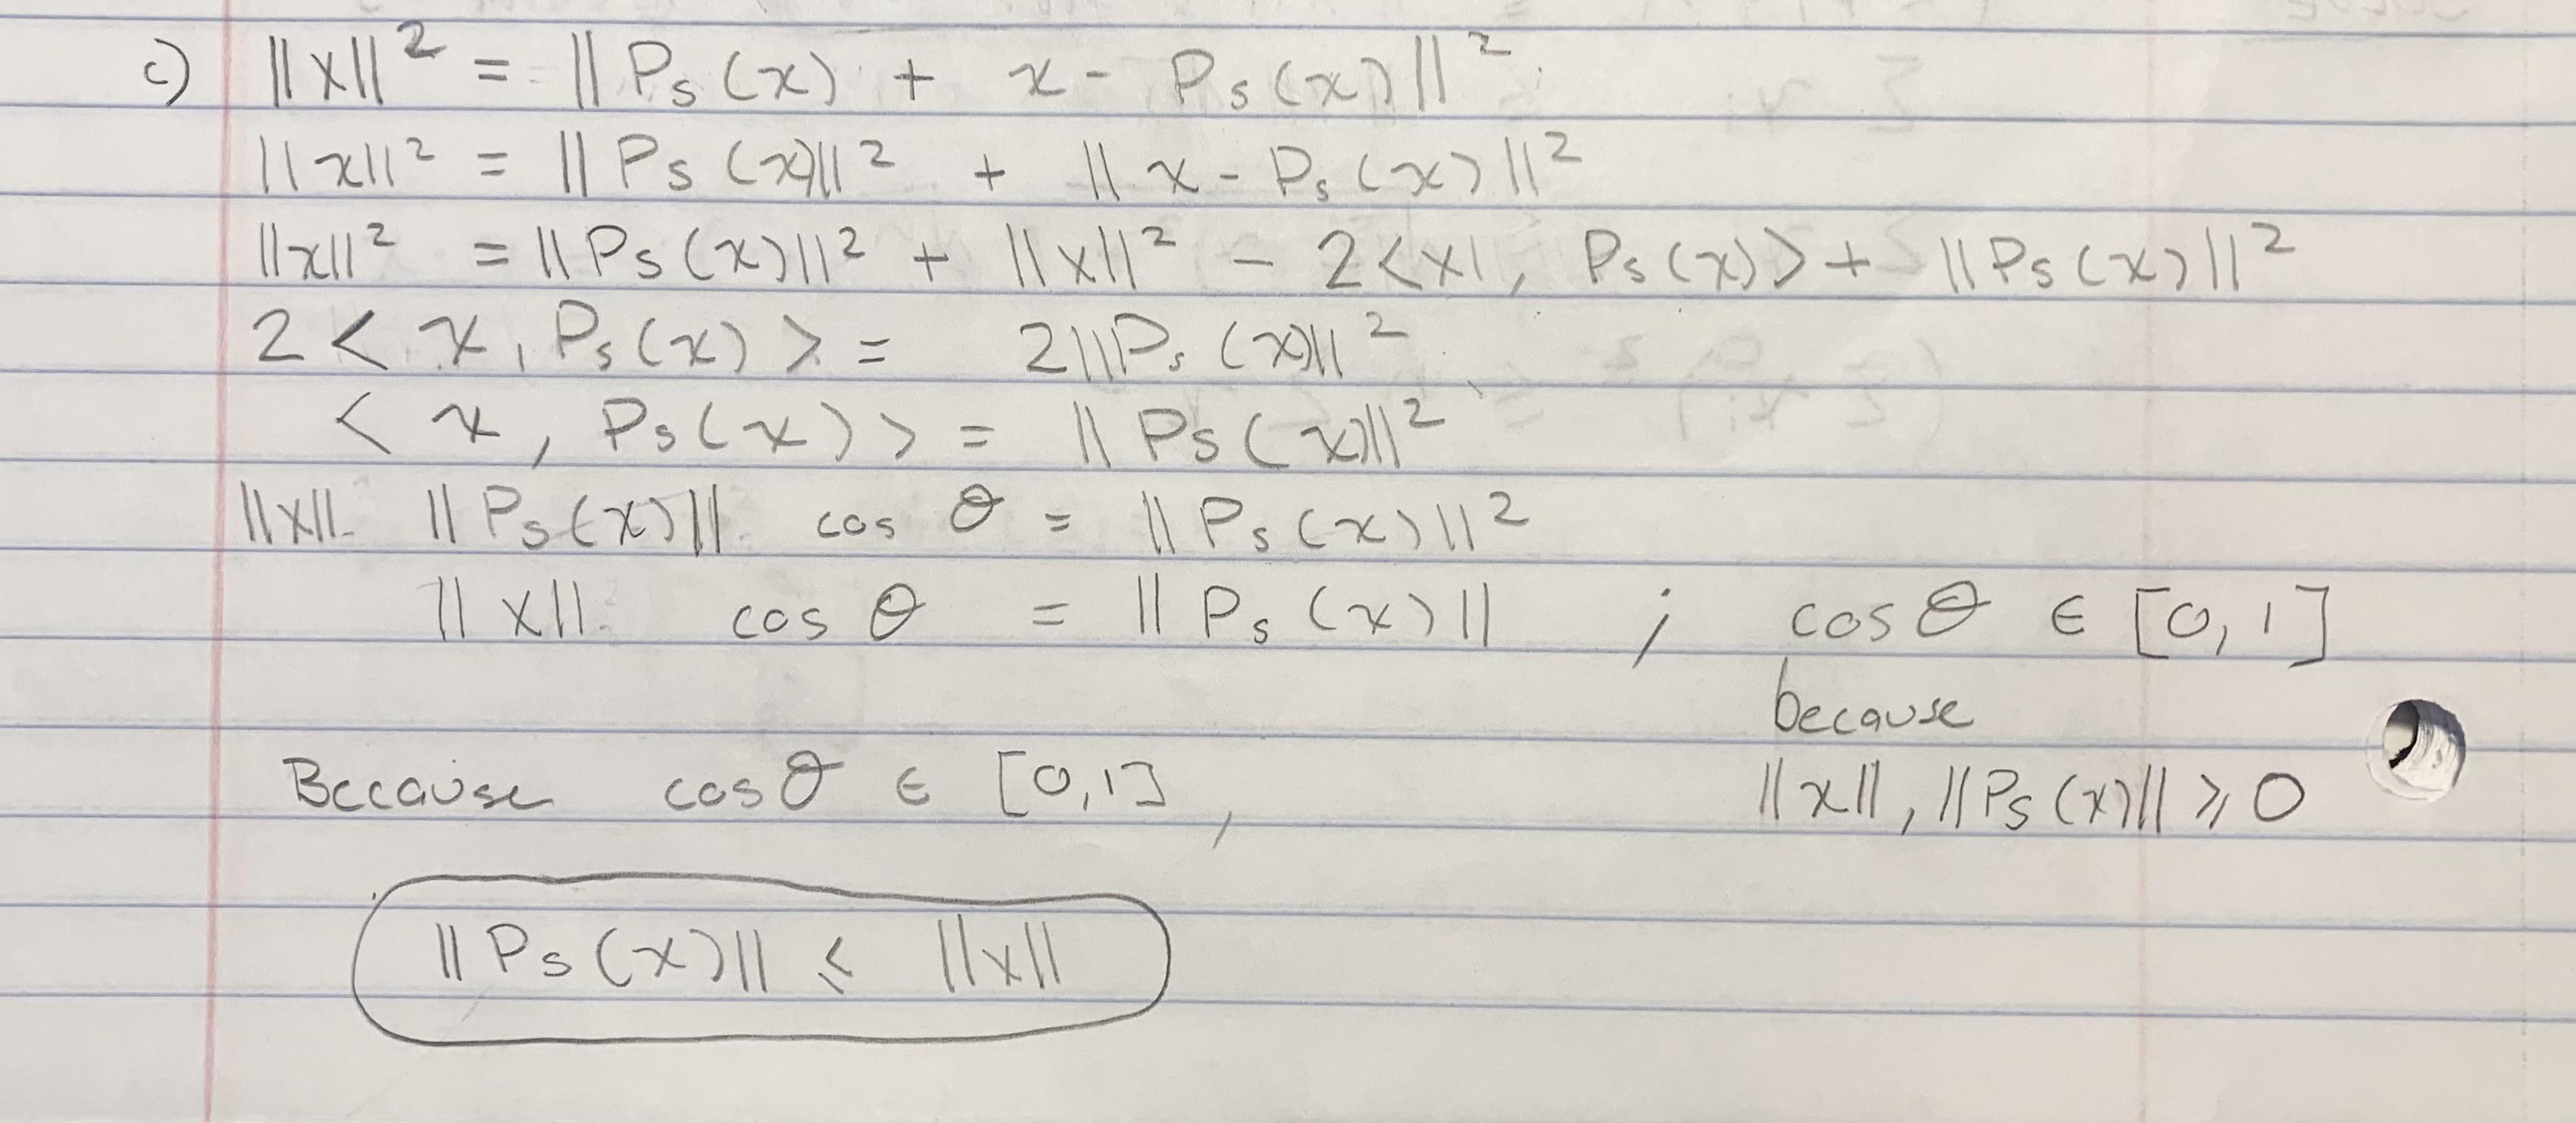 c) ||x||² = || Ps(x) + x - Ps(x)||²
||x||² = || Ps(x)||² + || x - Ps(x)||²
||x||² = || Ps(x)||² + ||x||² - 2<x|, Ps(x)> + ||Ps(x)||²
2 < x, Ps(x) > = 2||Ps(x)||²
< x, Ps(x) > = || Ps(x)||²
||x|| · || Ps(x)|| · cos θ = || Ps(x)||²
||x|| · cos θ = || Ps(x)|| ; cos θ ∈ [0,1]
because
Because cos θ ∈ [0,1], ||x||, ||Ps(x)|| ⩾ 0
|| Ps(x)|| ⩽ ||x||